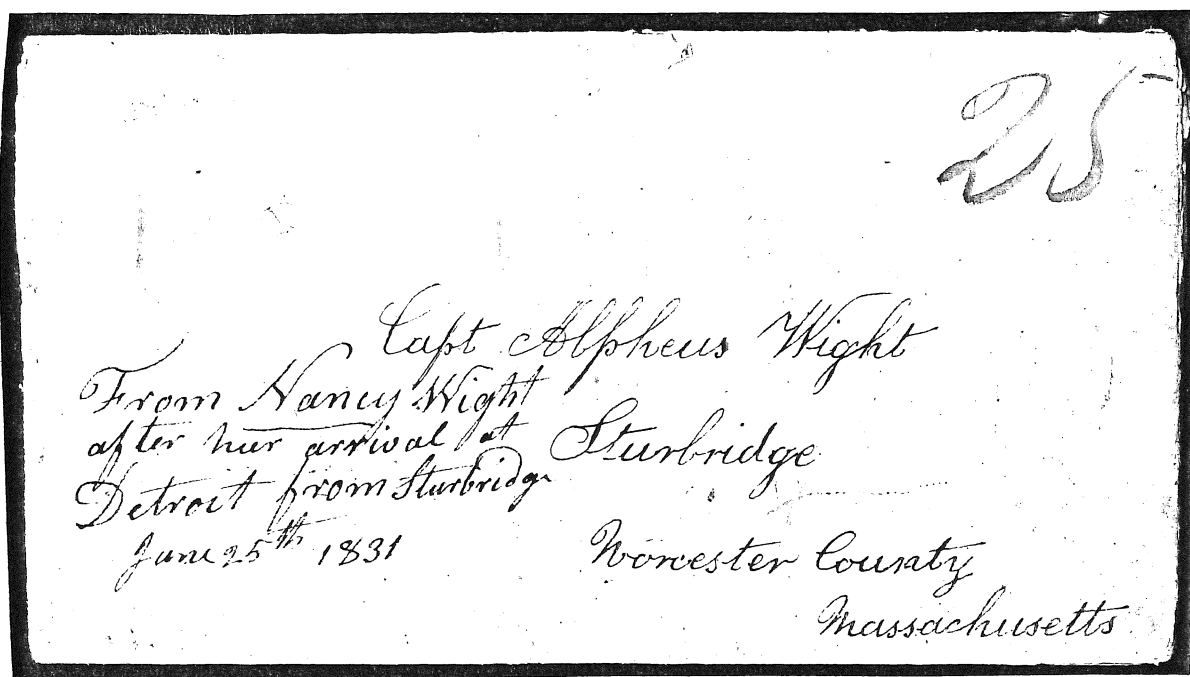 25
Capt Alpheus Wight
Sturbridge
Worcester County
Massachusetts
From Nancy Wight
after her arrival at
Detroit from Sturbridge
June 25th 1831